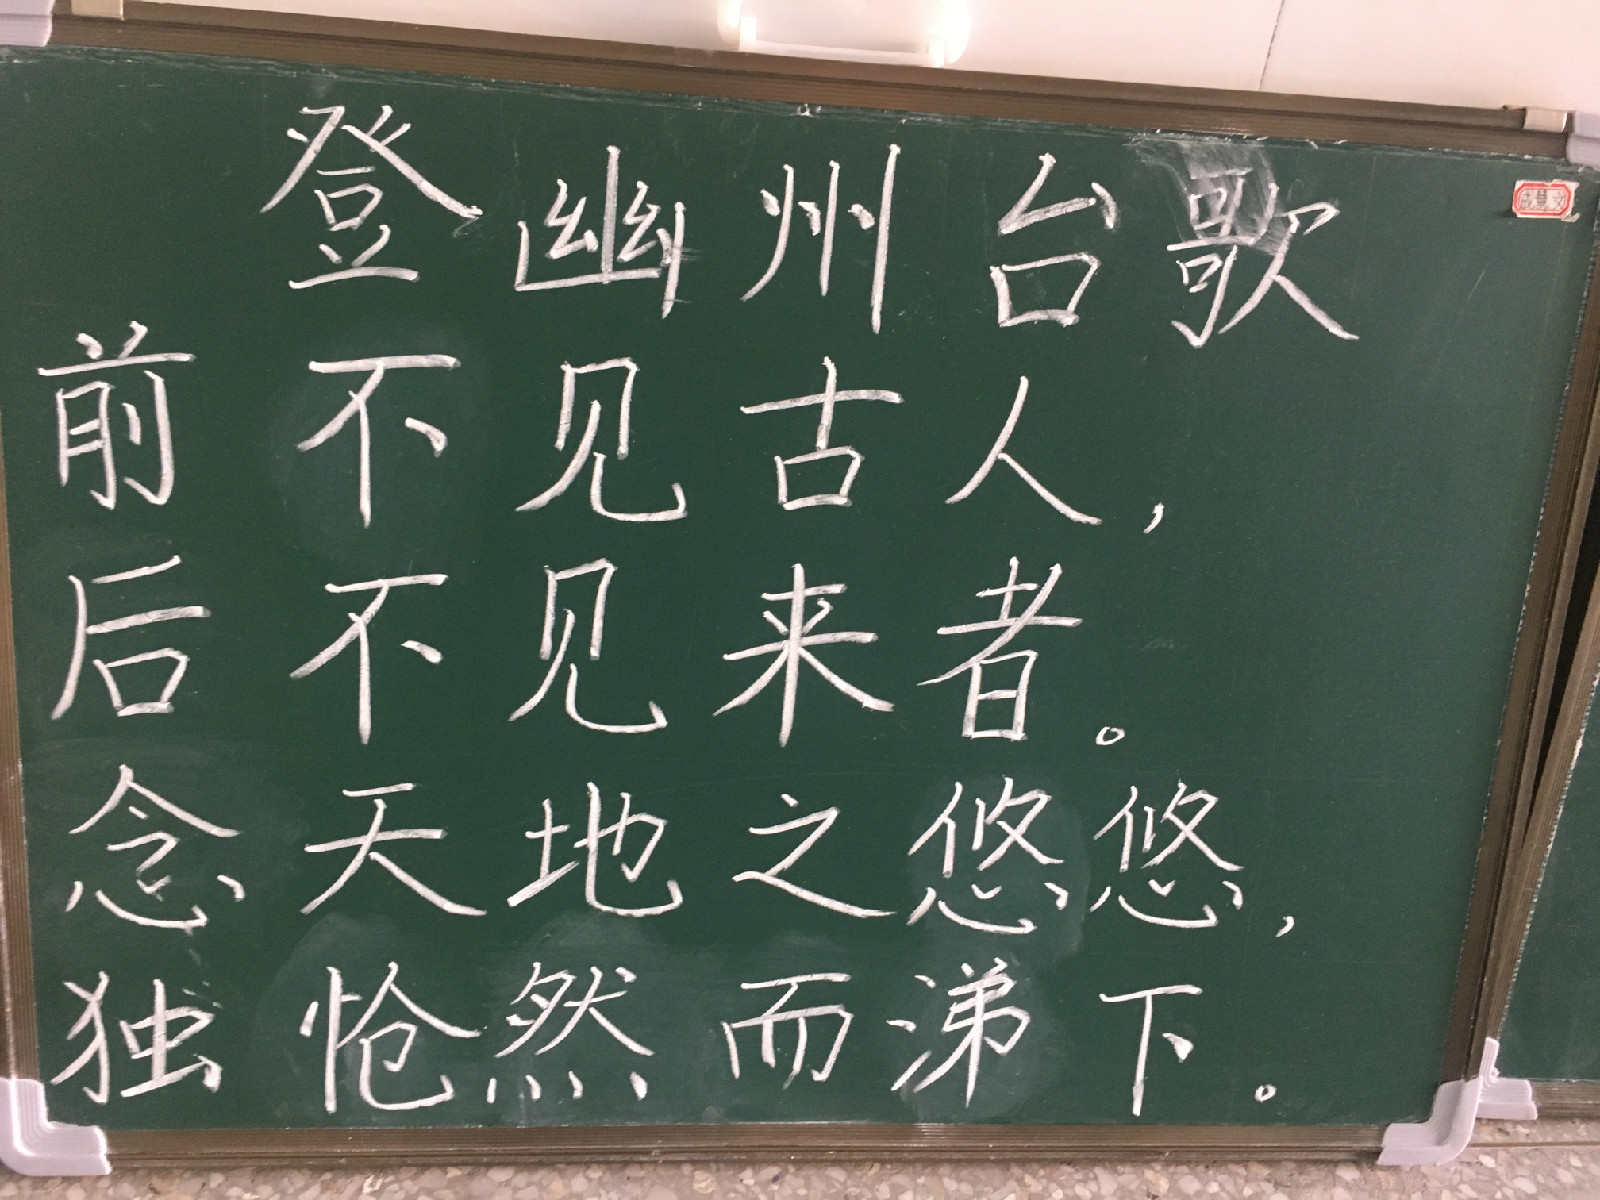 登幽州台歌
前不见古人，
后不见来者。
念天地之悠悠，
独怆然而涕下。